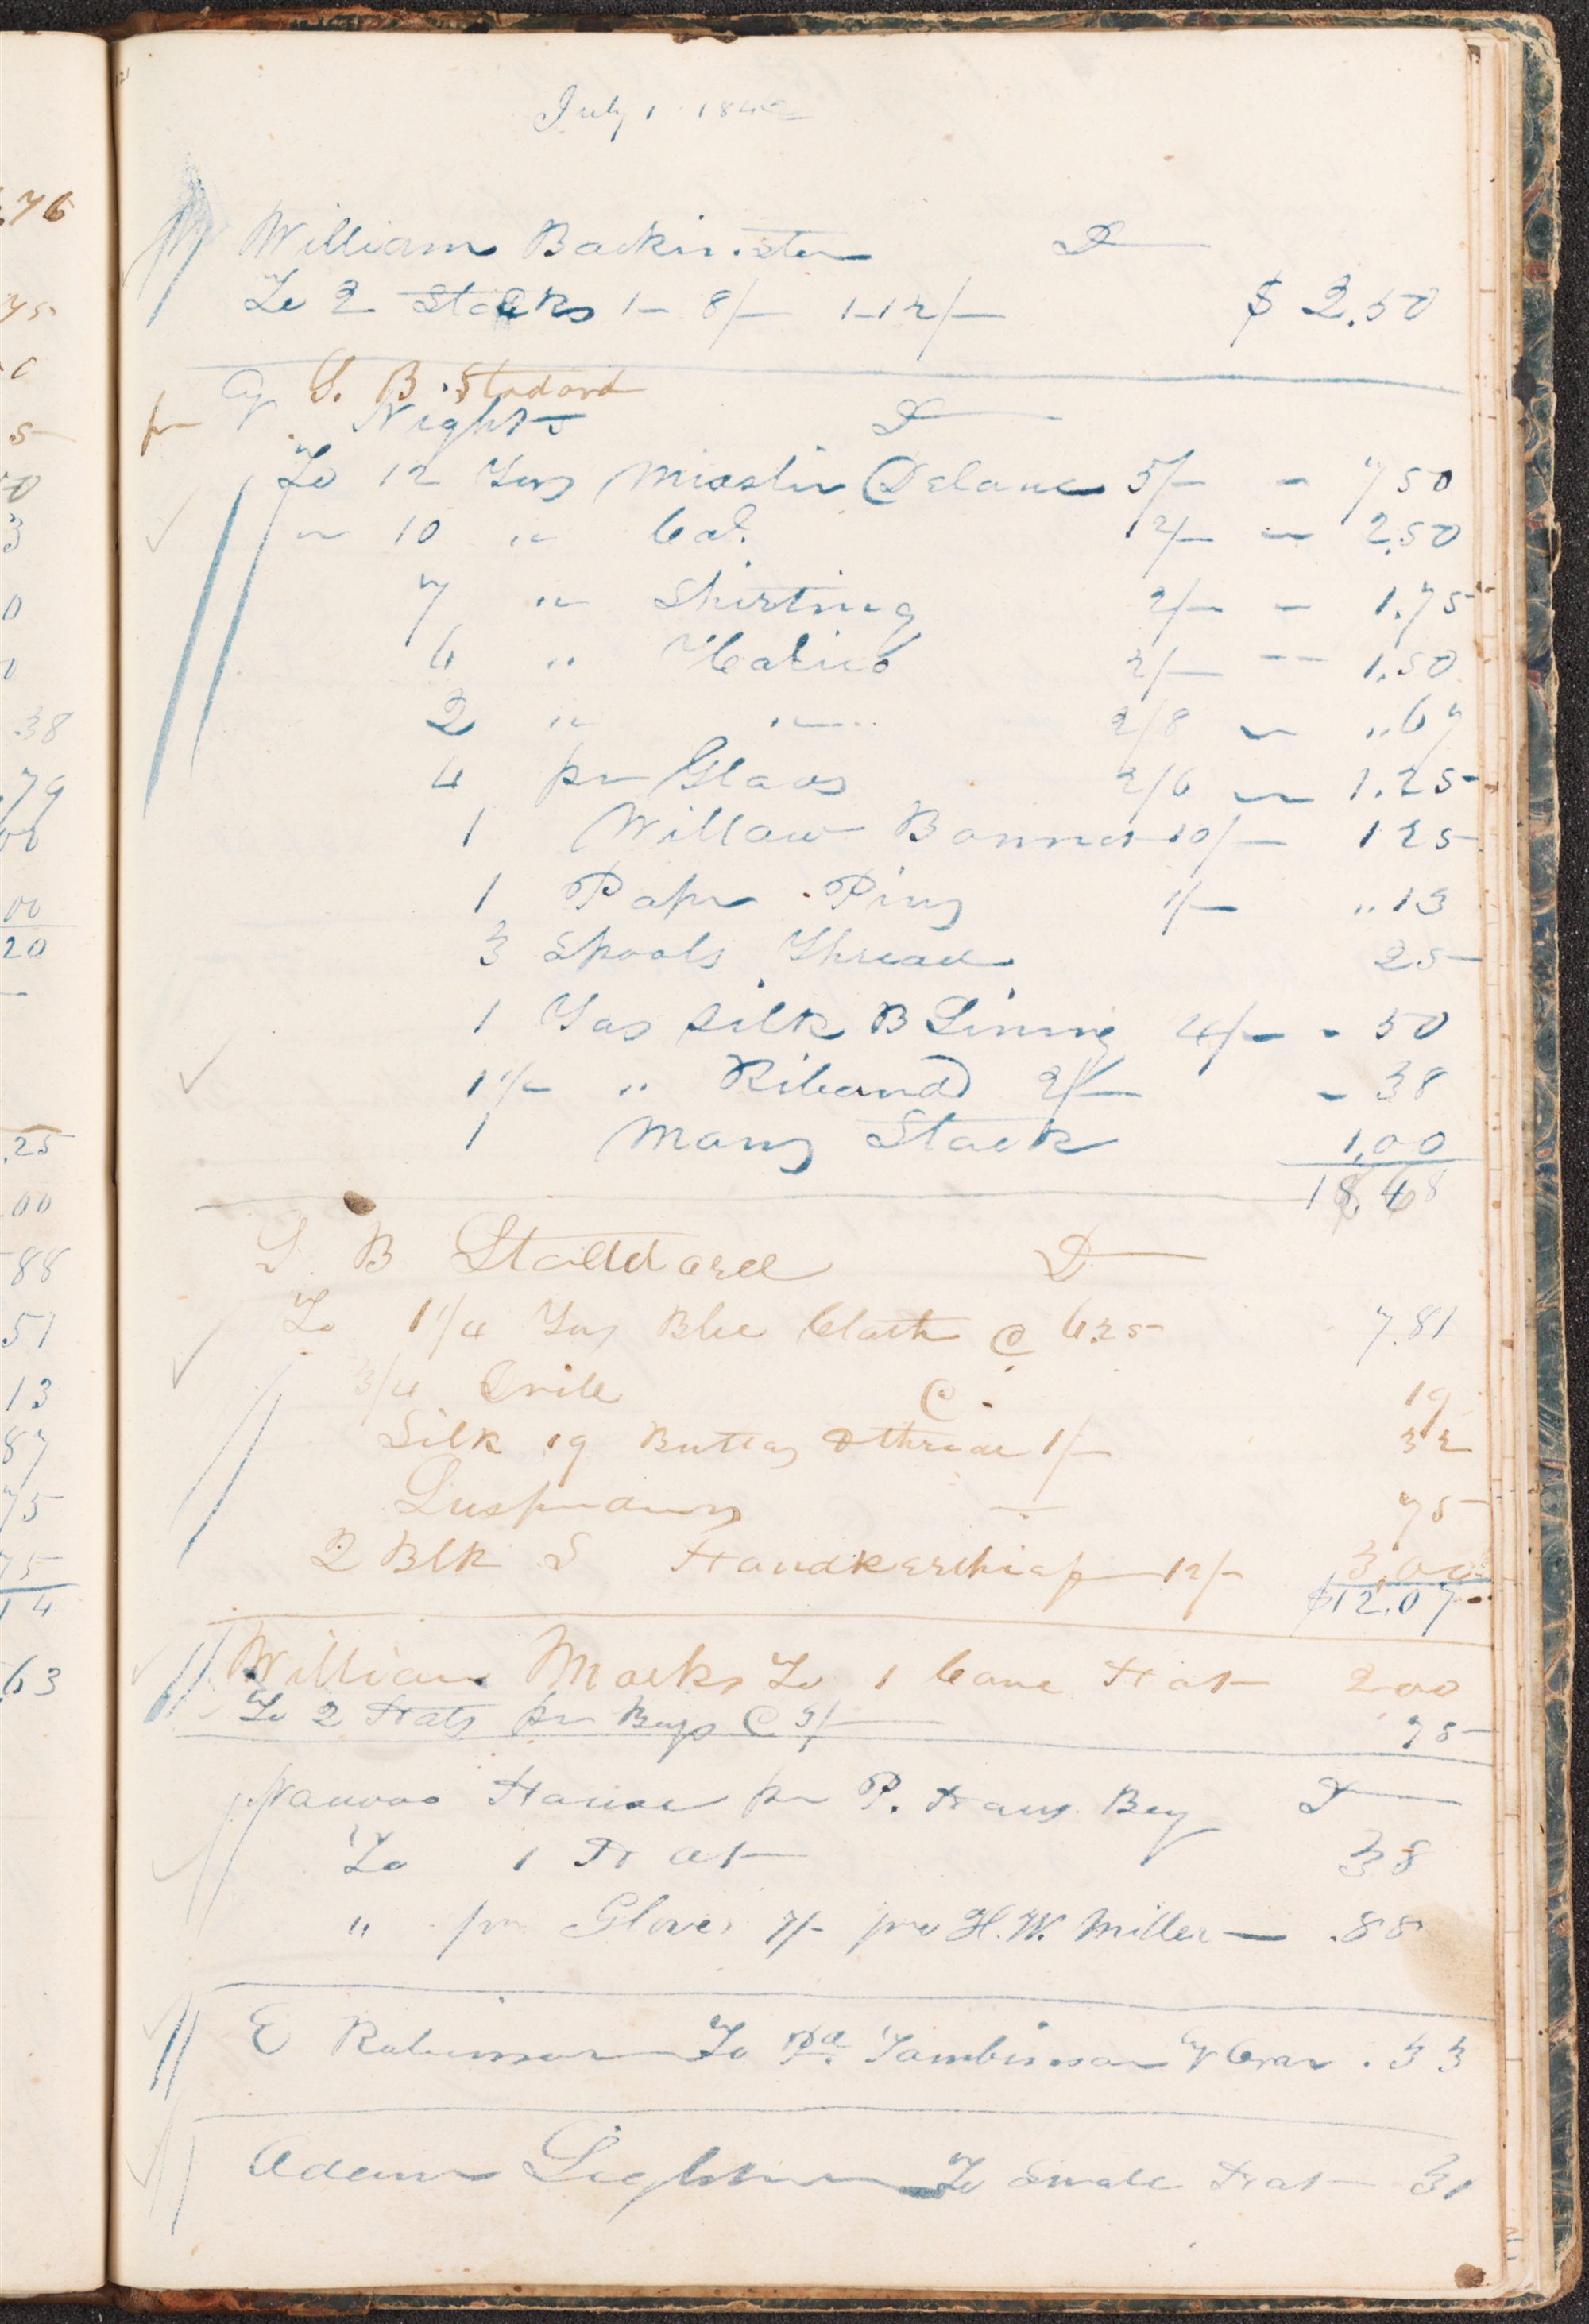 .76
75
.38
.79
00
00
20
.25
.00
88
51
13
87
75
75
14
63
July 1 1842
William Backinsten D
To 2 Stocks 1- 8/- 1-12/- $ 2.50
S. B. Stodard
pr Nights D
To 12 Yds Muslin Delane 5/- - 7 50
" 10 " Cal. 2/- - 2.50
7 " Shirting 2/- - 1.75
6 " Calico 2/- -- 1.50
2 " " 2/8 - ..67
4 pr Glaos 2/6 - 1.25
1 Willow Bonnet 10/- 1 25
1 Papr Pins 1/- ..13
3 Spools Thread 25
1 Yds Silk B Lining 4/- - 50
1 1/2 " Riband 2/- - 38
1 Mans Stock 1.00
18.68
S. B Stoddard D
To 1 1/4 Yds Blue Cloth @ 6.25 7.81
3/4 Drill @ 19
Silk 19 Buttons & thread 1/- 32
Suspendurs 75
2 Blk S Handkerchief 12/- 3.00
$12.07
William Marks To 1 Cane Hat 200
To 2 Hats pr Boys @ 3/- 75
Nauvoo House pr P. Haws Boy D
To 1 Hat 38
" pr Gloves 7/- pr H. W. Miller — .88
E Robinson To Pd Tombinson Cr .33
Adam Lightner To Small Hat 31